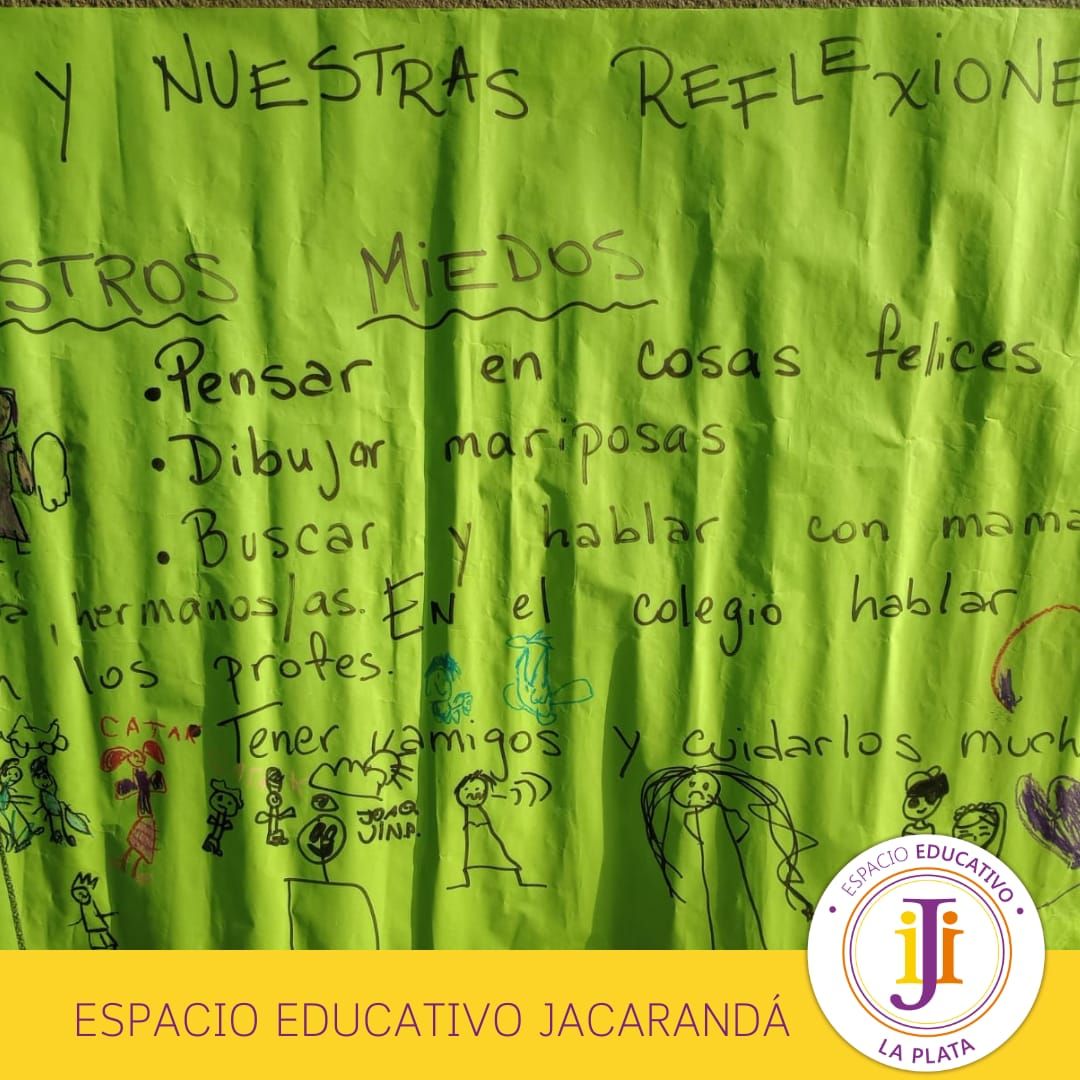 Y NUESTRAS REFLEXIONE
STROS MIEDOS
• Pensar en cosas felices
• Dibujar mariposas
• Buscar y hablar con mama
a, hermanos/as. EN el colegio hablar
n los profes.
Tener amigos y cuidarlos much
CATA
JOAQ
JINA.
ESPACIO EDUCATIVO JACARANDÁ
• ESPACIO EDUCATIVO •
iJi
LA PLATA